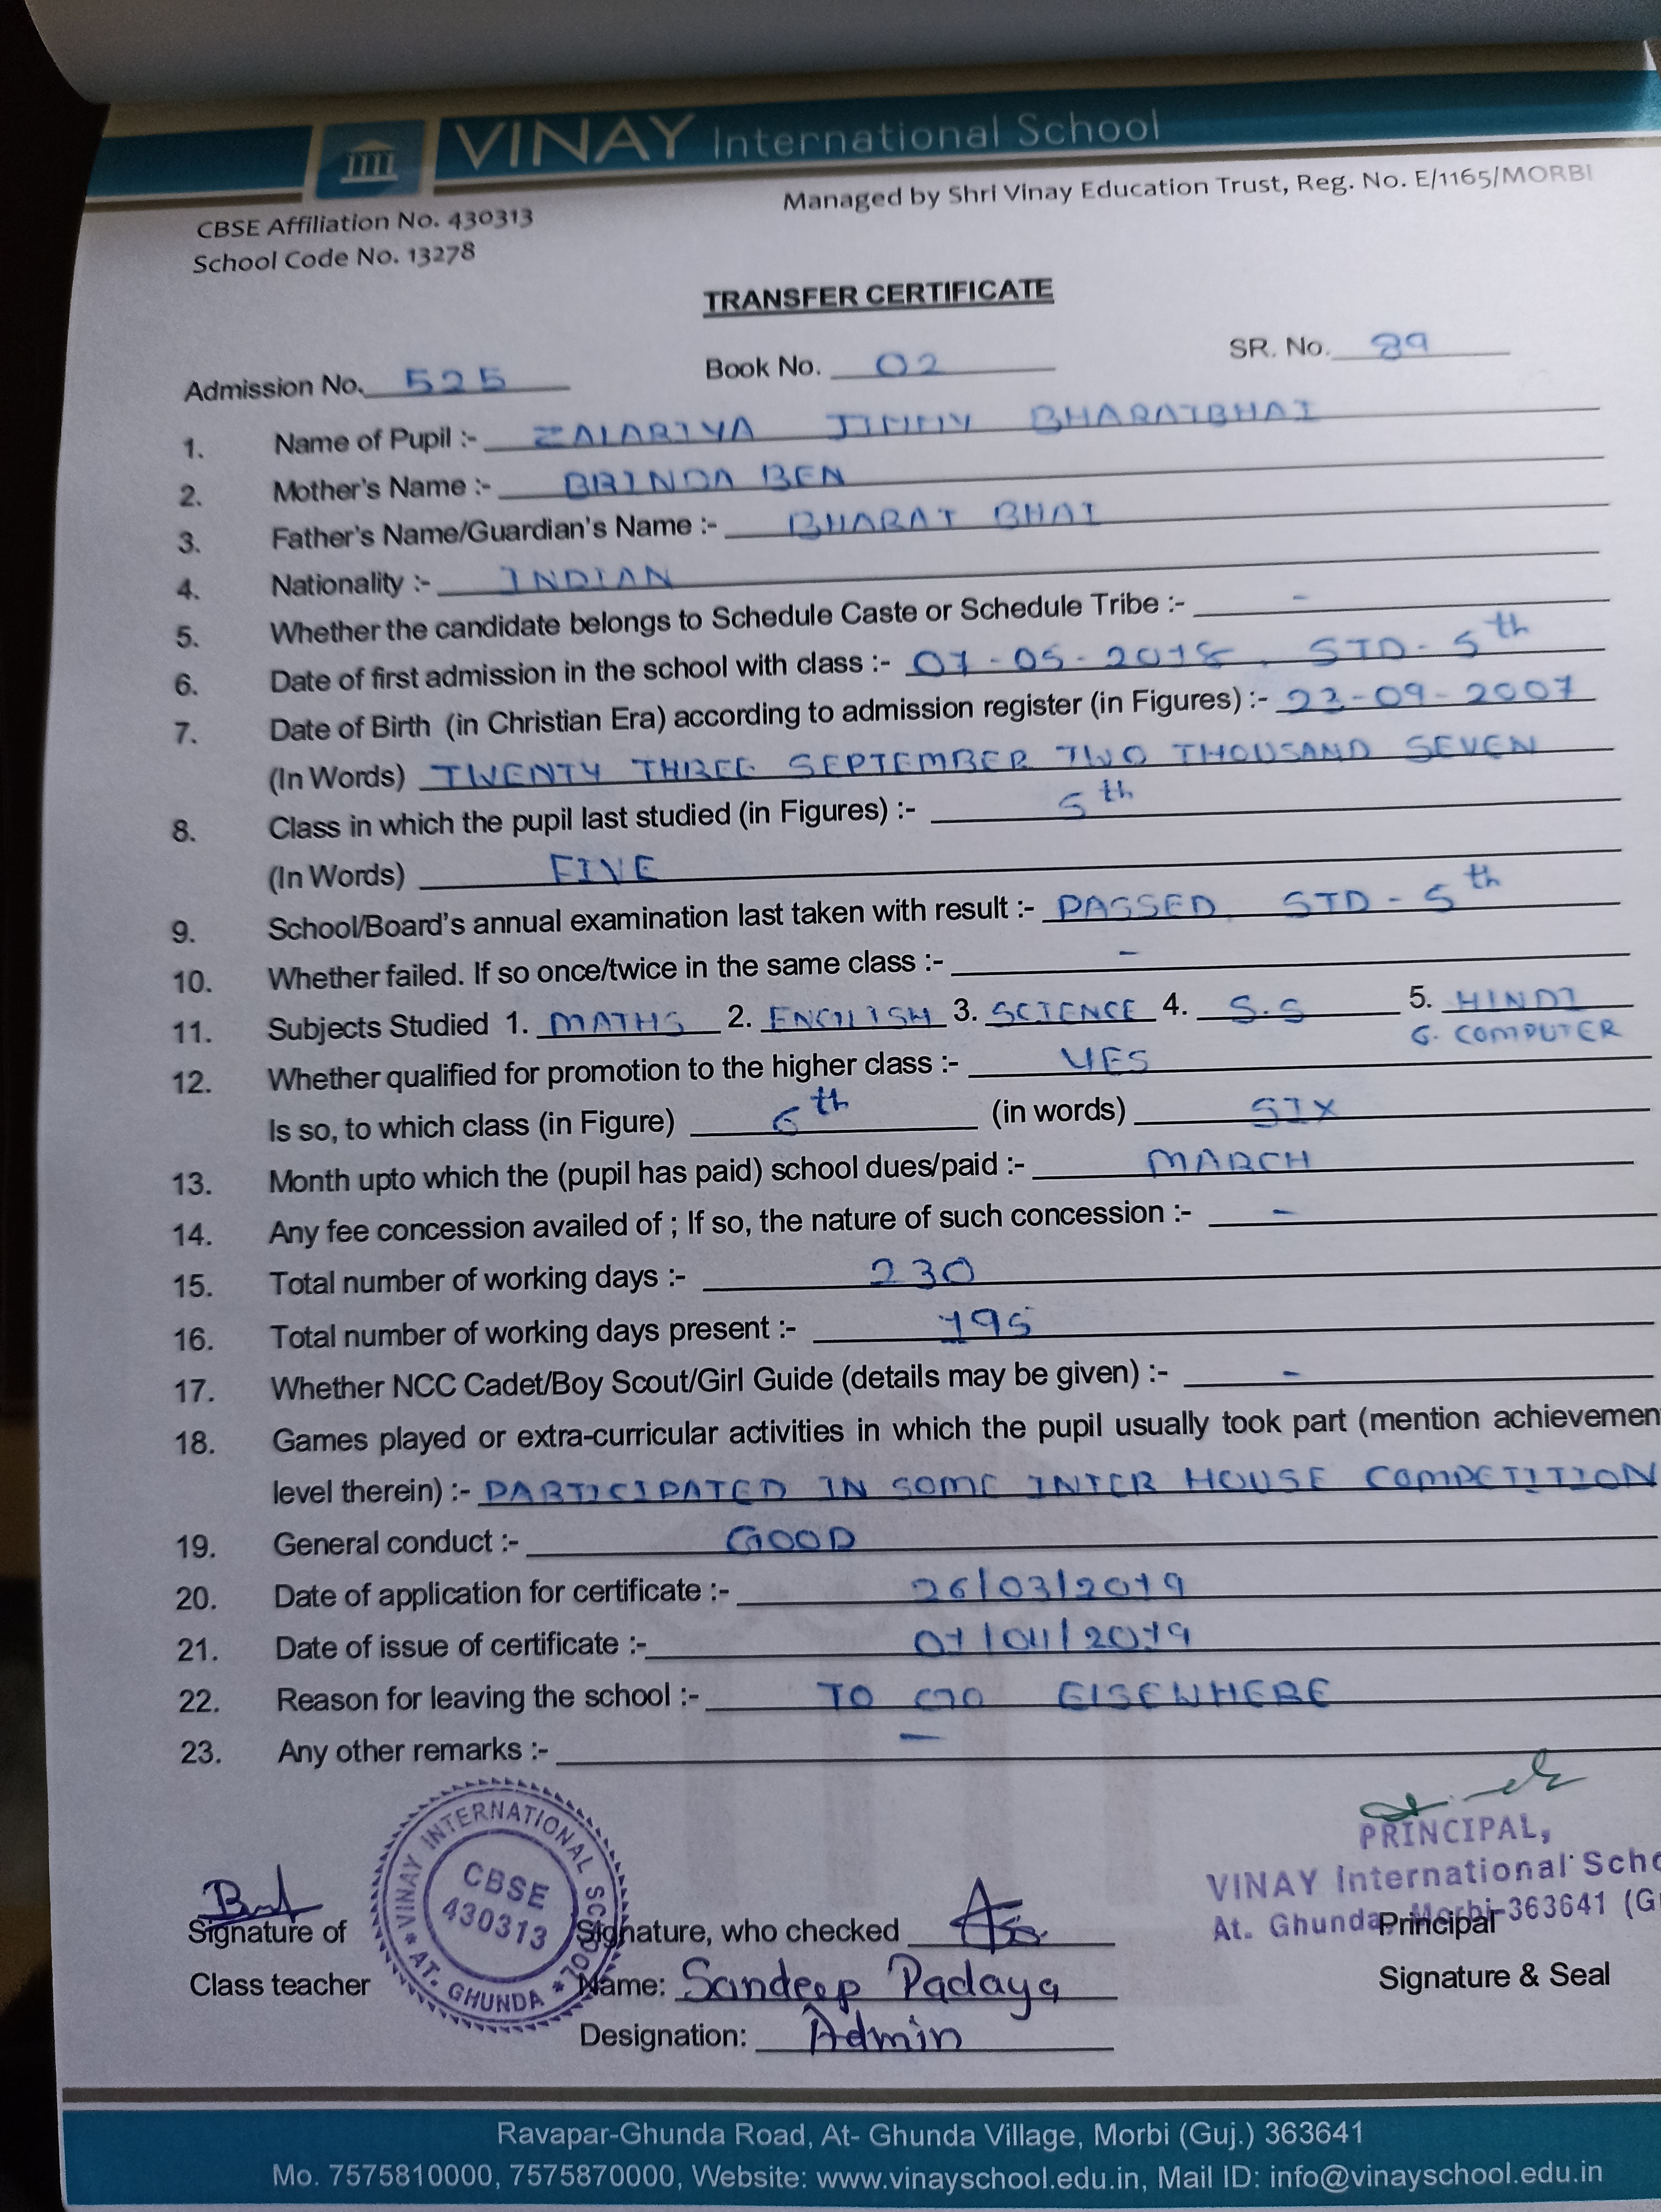 VINAY International School
Managed by Shri Vinay Education Trust, Reg. No. E/1165/MORBI
CBSE Affiliation No. 430313
School Code No. 13278
TRANSFER CERTIFICATE
Admission No. 525 Book No. 02 SR. No. 89
1. Name of Pupil :- ZALARIYA JIMMY BHARATBHAI
2. Mother's Name :- BRINDA BEN
3. Father's Name/Guardian's Name :- BHARAT BHAI
4. Nationality :- INDIAN
5. Whether the candidate belongs to Schedule Caste or Schedule Tribe :- -
6. Date of first admission in the school with class :- 01-05-2018, STD-5th
7. Date of Birth (in Christian Era) according to admission register (in Figures) :- 23-09-2007
(In Words) TWENTY THREE SEPTEMBER TWO THOUSAND SEVEN
8. Class in which the pupil last studied (in Figures) :- 5th
(In Words) FIVE
9. School/Board's annual examination last taken with result :- PASSED STD-5th
10. Whether failed. If so once/twice in the same class :- -
11. Subjects Studied 1. MATHS 2. ENGLISH 3. SCIENCE 4. S.S 5. HINDI
6. COMPUTER
12. Whether qualified for promotion to the higher class :- YES
Is so, to which class (in Figure) 6th (in words) SIX
13. Month upto which the (pupil has paid) school dues/paid :- MARCH
14. Any fee concession availed of ; If so, the nature of such concession :- -
15. Total number of working days :- 230
16. Total number of working days present :- 195
17. Whether NCC Cadet/Boy Scout/Girl Guide (details may be given) :- -
18. Games played or extra-curricular activities in which the pupil usually took part (mention achievemen
level therein) :- PARTICIPATED IN SOME INTER HOUSE COMPETITION
19. General conduct :- GOOD
20. Date of application for certificate :- 26/03/2019
21. Date of issue of certificate :- 01/04/2019
22. Reason for leaving the school :- TO GO ELSEWHERE
23. Any other remarks :- -
VINAY INTERNATIONAL SCHOOL * AT. GHUNDA *
CBSE
430313
PRINCIPAL,
VINAY International Scho
At. Ghunda, Morbi-363641 (G
Signature of
Class teacher
Signature, who checked
Name: Sandeep Padaya
Designation: Admin
Principal
Signature & Seal
Ravapar-Ghunda Road, At- Ghunda Village, Morbi (Guj.) 363641
Mo. 7575810000, 7575870000, Website: www.vinayschool.edu.in, Mail ID: info@vinayschool.edu.in